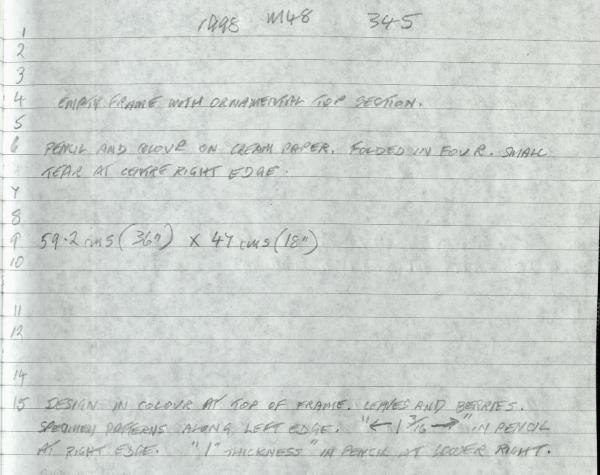 1998 M48 345
1
2
3
4 EMPTY FRAME WITH ORNAMENTAL TOP SECTION.
5
6 PENCIL AND COLOUR ON CREAM PAPER. FOLDED IN FOUR. SMALL
TEAR AT CENTRE RIGHT EDGE.
7
8
9 59.2 cms (36") x 47 cms (18")
10
11
12
14
15 DESIGN IN COLOUR AT TOP OF FRAME. LEAVES AND BERRIES.
SPECIMEN PATTERNS ALONG LEFT EDGE. "← 1 3/16 →" IN PENCIL
AT RIGHT EDGE. "1" THICKNESS" IN PENCIL AT LOWER RIGHT.